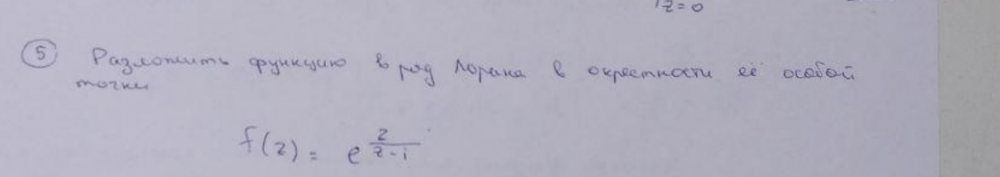 z=0
5 Разложить функцию в ряд Лорана в окрестности её особой
точки
f(z) = e^{\frac{z}{z-i}}